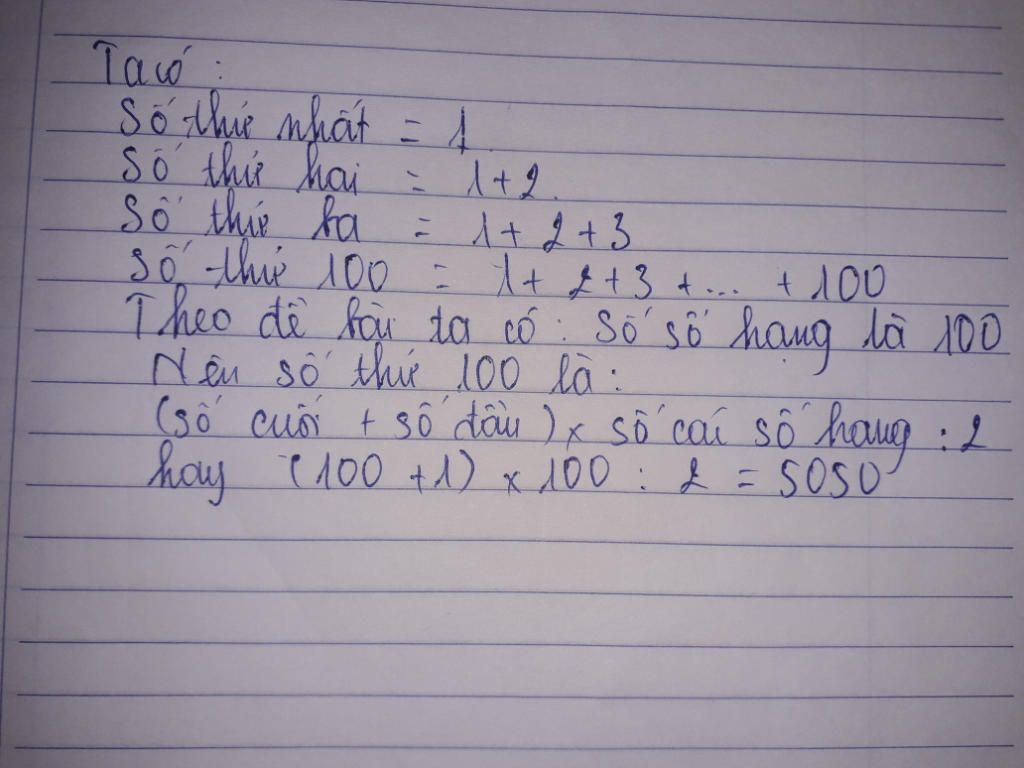 Ta có :
Số thứ nhất = 1.
Số thứ hai = 1+2.
Số thứ ba = 1+ 2+3
Số thứ 100 = 1+ 2+3 +... +100
Theo đề bài ta có : Số số hạng là 100
Nên số thứ 100 là :
(số cuối + số đầu) x số cái số hang : 2
hay (100 +1) x 100 : 2 = 5050